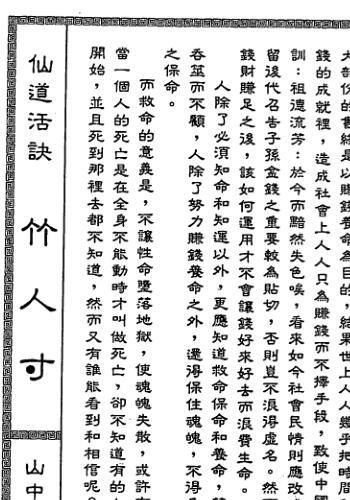 大部份的舊統是以賺錢養命為目的，結果世上人人幾乎把時間
錢的成就裡，造成社會上人人只為賺錢而不擇手段，致使中國
訓：祖德流芳：於今而黯然失色唉，看來如今社會民情則應改
留後代召告子孫金錢之重要較為貼切，否則豈不浪得虛名。然
錢財賺足之後，該如何運用才不會讓錢好來好去而浪費生命。
人除了必須知命和知運以外，更應知道救命保命和養命，
吞茲而不顧，人除了努力賺錢養命之外，還得保住魂魄，不得
之保命。
而救命的意義是，不讓性命墮落地獄，使魂魄失散，或許有
當一個人的死亡是在全身不能動時才叫做死亡，卻不知道有的
開始，並且死到那裡去都不知道，然而又有誰能看到和相信呢？
仙道活訣 竹人寸
山中